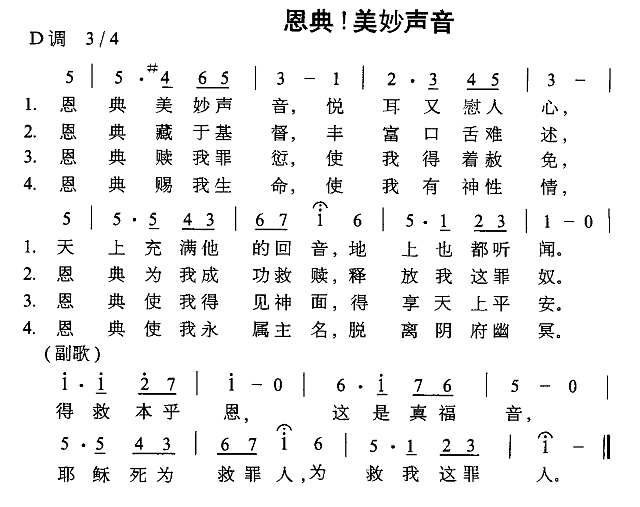 恩典！美妙声音
D调 3/4
5 | 5 · #4 65 | 3 – 1 | 2 · 3 45 | 3 – |
1. 恩 典 美 妙声 音，悦 耳 又 慰人 心，
2. 恩 典 藏 于基 督，丰 富 口 舌难 述，
3. 恩 典 赎 我罪 愆，使 我 得 着赦 免，
4. 恩 典 赐 我生 命，使 我 有 神性 情，
5 | 5 · 5 43 | 67 i 6 | 5 · 1 23 | 1 – 0 |
1. 天 上 充 满他 的回 音，地 上 也 都听 闻。
2. 恩 典 为 我成 功救 赎，释 放 我 这罪 奴。
3. 恩 典 使 我得 见神 面，得 享 天 上平 安。
4. 恩 典 使 我永 属主 名，脱 离 阴 府幽 冥。
(副歌)
i · i 27 | i – 0 | 6 · i 76 | 5 – 0 |
得 救 本乎 恩， 这 是 真福 音，
5 · 5 43 | 67 i 6 | 5 · 1 23 | i – ‖
耶 稣 死为 救罪 人，为 救 我 这罪 人。